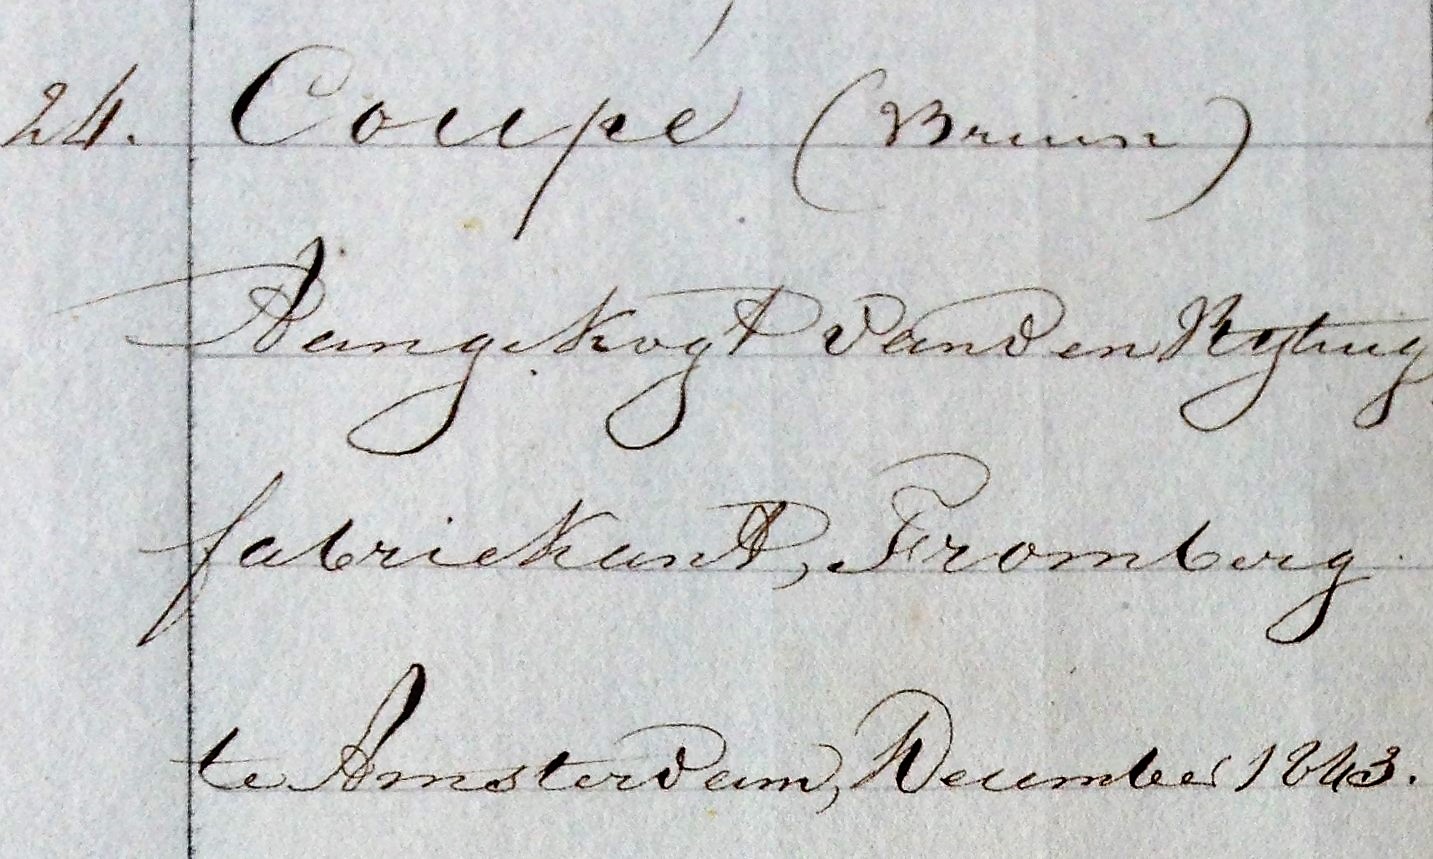 24. Coupé (Bruin)
Aangekogt van den Rytuig
fabriekant, Fromberg
te Amsterdam, December 1843.